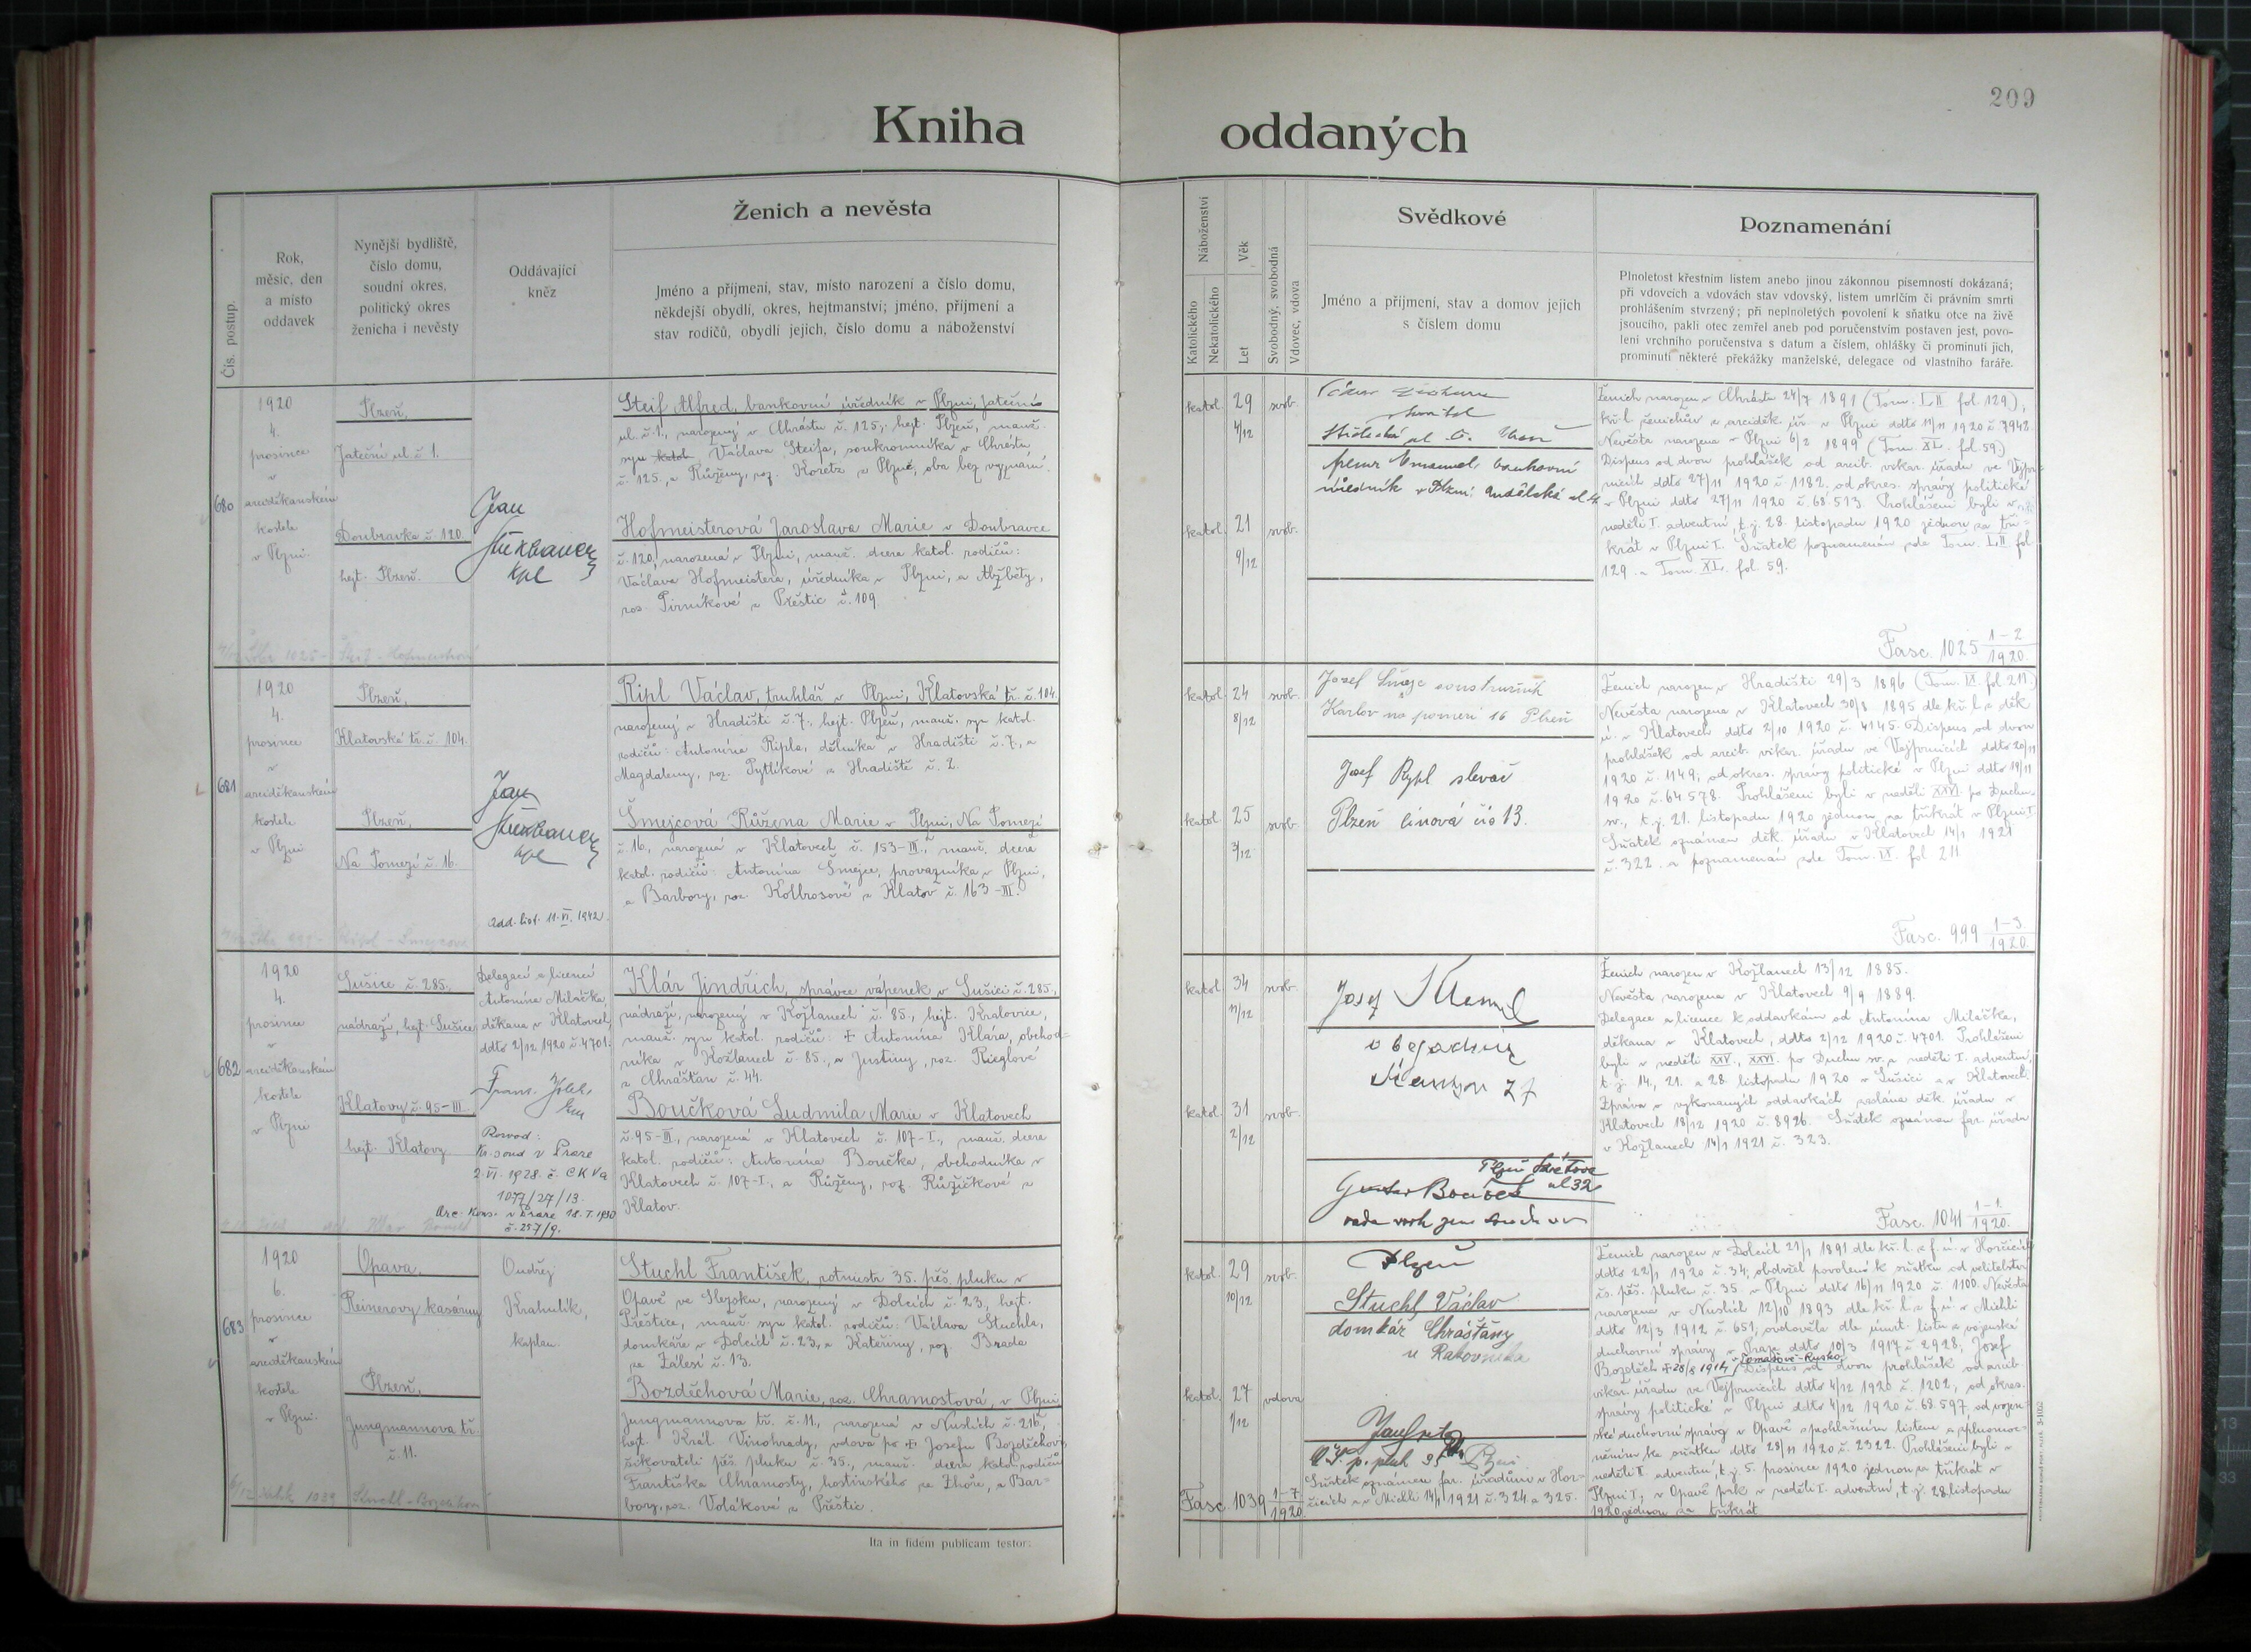 209
Kniha oddaných
Čís. postup.
Rok,
měsíc, den
a místo
oddavek
Nynější bydliště,
číslo domu,
soudní okres,
politický okres
ženicha i nevěsty
Oddávající
kněz
Ženich a nevěsta
Jméno a příjmení, stav, místo narození a číslo domu,
někdejší obydlí, okres, hejtmanství; jméno, příjmení a
stav rodičů, obydlí jejich, číslo domu a náboženství
Náboženství
Katolického
Nekatolického
Věk
Let
Svobodný, svobodná
Vdovec, vdova
Svědkové
Jméno a příjmení, stav a domov jejich
s číslem domu
Poznamenání
Plnoletost křestním listem anebo jinou zákonnou písemností dokázaná;
při vdovcích a vdovách stav vdovský, listem umrlčím či právním smrti
prohlášením stvrzený; při neplnoletých povolení k sňatku otce na živě
jsoucího, pakli otec zemřel aneb pod poručenstvím postaven jest, povo-
lení vrchního poručenstva s datum a číslem, ohlášky či prominutí jich,
prominutí některé překážky manželské, delegace od vlastního faráře.
680
1920
4.
prosince
v
arciděkanském
kostele
v Plzni.
Plzeň,
Jateční ul č 1.
Doubravka č. 120.
hejt. Plzeň.
Jan
kpl
Steif Alfred, bankovní úředník v Plzni, Jateční
ul. č. 1., narozený v Chrástu č. 125., hejt. Plzeň, manž.
syn Václava Steifa, soukromníka v Chrástu
č. 125. a Růženy, roz. Koretz z Plzně, oba bez vyznání.
Hofmeisterová Jaroslava Marie v Doubravce
č. 120, narozená v Plzni, manž. dcera katol. rodičů:
Václava Hofmeistera, úředníka v Plzni, a Alžběty,
roz. Pirníkové z Přeštic č. 109.
katol. 29 svob.
4/12
katol. 21 svob.
9/12
Emanuel bankovní
úředník v Plzni
Ženich narozen v Chrástu 24/7 1891 (Tom. L II fol. 129),
kř. l. ženichův z arciděk. úř. v Plzni ddto 11/11 1920 č 7942.
Nevěsta narozena v Plzni 6/2 1899 (Tom XL. fol. 59.)
Dispens od dvou prohlášek od arcib. vikar. úřadu ve Vejpr-
nicích ddto 27/11 1920 č. 1182. od okres. správy politické
v Plzni ddto 27/11 1920 č. 68.513. Prohlášeni byli v
neděli I. adventní, t. j. 28. listopadu 1920 jednou za tři-
krát v Plzni I. Sňatek poznamenán zde Tom. L II fol.
129. a Tom. XL. fol. 59.
Fasc. 1025 1-2
1920.
681
1920
4.
prosince
v
arciděkanském
kostele
v Plzni
Plzeň,
Klatovská tř. č. 104.
Plzeň,
Na Pomezí č. 16.
Jan
kpl
odd. list. 11. VI. 1942.
Ripl Václav, truhlář v Plzni, Klatovská tř. č. 104.
narozený v Hradišti č. 7., hejt. Plzeň, manž. syn katol.
rodičů: Antonína Ripla, dělníka v Hradišti č. 7., a
Magdaleny, roz. Pytlíkové z Hradiště č. 2.
Šmejcová Růžena Marie v Plzni, Na Pomezí
č. 16., narozená v Klatovech č. 153-III., manž. dcera
katol. rodičů: Antonína Šmejce, provazníka v Plzni,
a Barbory, roz. Kolbrosové z Klatov č. 163-III.
katol. 24 svob.
8/12
katol. 25 svob.
3/12
Josef Šmejc soustružník
Karlov na pomezí 16 Plzeň
Josef Rypl slevač
Plzeň čis 13.
Ženich narozen v Hradišti 29/3 1896 (Tom. IX. fol. 211.)
Nevěsta narozena v Klatovech 30/8 1895 dle kř. l. z děk
ú. v Klatovech ddto 2/10 1920 č. 4145. Dispens od dvou
prohlášek od arcib. vikar. úřadu ve Vejprnicích ddto 20/11
1920 č. 1149, od okres. správy politické v Plzni ddto 19/11
1920 č. 64.578. Prohlášeni byli v neděli XXVI. po Duchu
sv., t. j. 21. listopadu 1920 jednou za třikrát v Plzni I.
Sňatek oznámen děk. úřadu v Klatovech 14/1 1921
č. 322. a poznamenán zde Tom. IX. fol 211.
Fasc. 999 1-3
1920.
682
1920
4.
prosince
v
arciděkanském
kostele
v Plzni
Sušice č. 285.,
nádraží, hejt. Sušice
Klatovy č. 95-III.
hejt. Klatovy
Delegací a licencí
Antonína Miláčka,
děkana v Klatovech
ddto 2/12 1920 č. 4701.
Rozvod:
Kr. soud v Praze
2. VI. 1928. č. CK Va
1077/27/13.
Arc. Kons. v Praze 18. I. 1930
č. 257/9.
Klár Jindřich, správce vápenek v Sušici č. 285.,
nádraží, narozený v Kožlanech č. 85., hejt. Kralovice,
manž. syn katol. rodičů: ✝ Antonína Klára, obchod-
níka v Kožlanech č. 85., a Justiny, roz. Rieglové
z Chrášťan č. 44.
Boučková Ludmila Marie v Klatovech
č. 95-III., narozená v Klatovech č. 107-I., manž. dcera
katol. rodičů: Antonína Boučka, obchodníka v
Klatovech č. 107-I., a Růženy, roz. Růžičkové z
Klatov.
katol. 34 svob.
11/12
katol. 31 svob.
2/12
Josef
27
Plzeň
ul 32
Gustav Bouček
Plzeň
Ženich narozen v Kožlanech 13/12 1885.
Nevěsta narozena v Klatovech 9/9 1889.
Delegace a licence k oddavkám od Antonína Miláčka,
děkana v Klatovech, ddto 2/12 1920 č. 4701. Prohlášeni
byli v neděli XXV., XXVI. po Duchu sv. a neděli I. adventní,
t. j. 14., 21. a 28. listopadu 1920 v Sušici a v Klatovech.
Zpráva o vykonaných oddavkách zaslána děk. úřadu v
Klatovech 18/12 1920 č. 8926. Sňatek oznámen far. úřadu
v Kožlanech 14/1 1921 č. 323.
Fasc. 1041 1-1.
1920.
683
1920
6.
prosince
v
arciděkanském
kostele
v Plzni.
Opava,
Reinerovy kasárny
Plzeň,
Jungmannova tř.
č. 11.
Ondřej
Krahulík,
kaplan.
Stuchl František, rotmistr 35. pěš. pluku v
Opavě ve Slezsku, narozený v Dolcích č. 23, hejt.
Přeštice, manž. syn katol. rodičů: Václava Stuchla,
domkáře v Dolcích č. 23., a Kateřiny, roz. Brada
ze Zálesí č. 13.
Bozděchová Marie, roz. Chramostová, v Plzni
Jungmannova tř. č. 11., narozená v Nuslích č. 216.,
hejt. Král. Vinohrady, vdova po ✝ Josefu Bozděchovi,
šikovateli pěš. pluku č. 35., manž. dcera katol. rodičů
Františka Chramosty, hostinského ze Zhoře, a Bar-
bory, roz. Volákové z Přeštic.
katol. 29 svob.
10/12
katol. 27 vdova
1/12
Stuchl Václav
domkář Chrášťany
u Rakovníka
Sňatek oznámen far. úřadům v Hor-
šicích a v Michli 14/1 1921 č. 324. a 325.
Fasc. 1039 1-7
1920.
Ženich narozen v Dolcích 21/1 1891 dle kř. l. z f. ú. v Horšicích
ddto 22/1 1920 č. 34, obdržel povolení k sňatku od velitelstva
čs. pěš. pluku č. 35. v Plzni ddto 16/11 1920 č. 1100. Nevěsta
narozena v Nuslích 12/10 1893 dle kř. l. z f. ú. v Michli
ddto 12/3 1912 č. 651, ovdověla dle úmrt. listu z vojenské
duchovní správy v Praze ddto 10/3 1917 č. 2928, Josef
Bozděch ✝ 28/8 1914 Tomašově-Rusko, Dispens od dvou prohlášek od arcib.
vikar. úřadu ve Vejprnicích ddto 4/12 1920 č. 1202, od okres.
správy politické v Plzni ddto 4/12 1920 č. 68.597, od vojen-
ské duchovní správy v Opavě s prohlášním listem a zplnomoc-
něním ke sňatku ddto 28/11 1920 č. 2322. Prohlášeni byli v
neděli II. adventní, t. j. 5. prosince 1920 jednou za třikrát v
Plzni I, v Opavě pak v neděli I. adventní, t. j. 28. listopadu
1920 jednou za třikrát
Ita in fidem publicam testor: